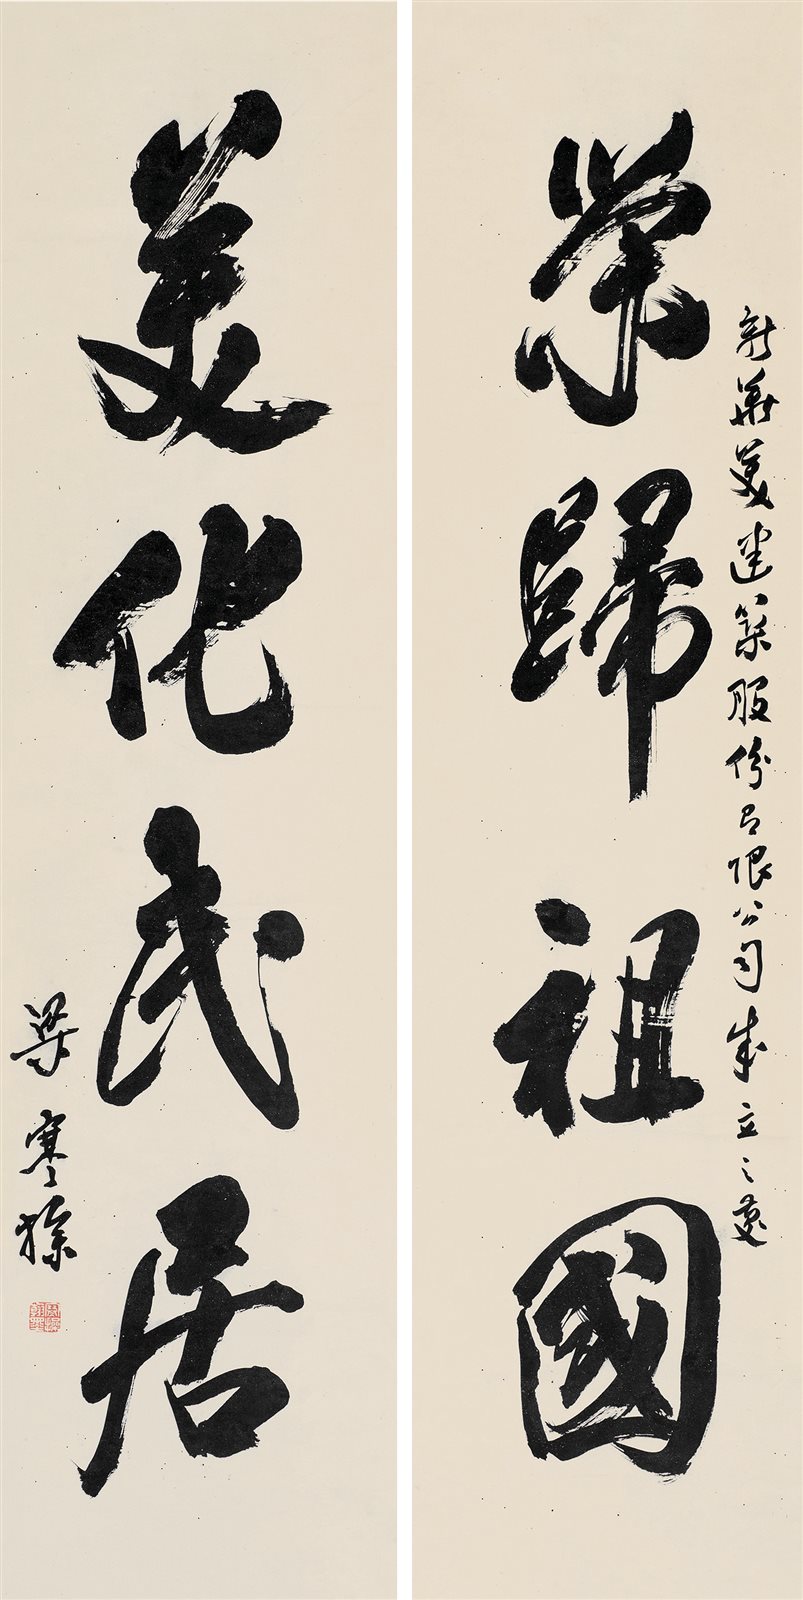 新華美建築股份有限公司成立之慶
榮歸祖國
美化民居
梁寒操